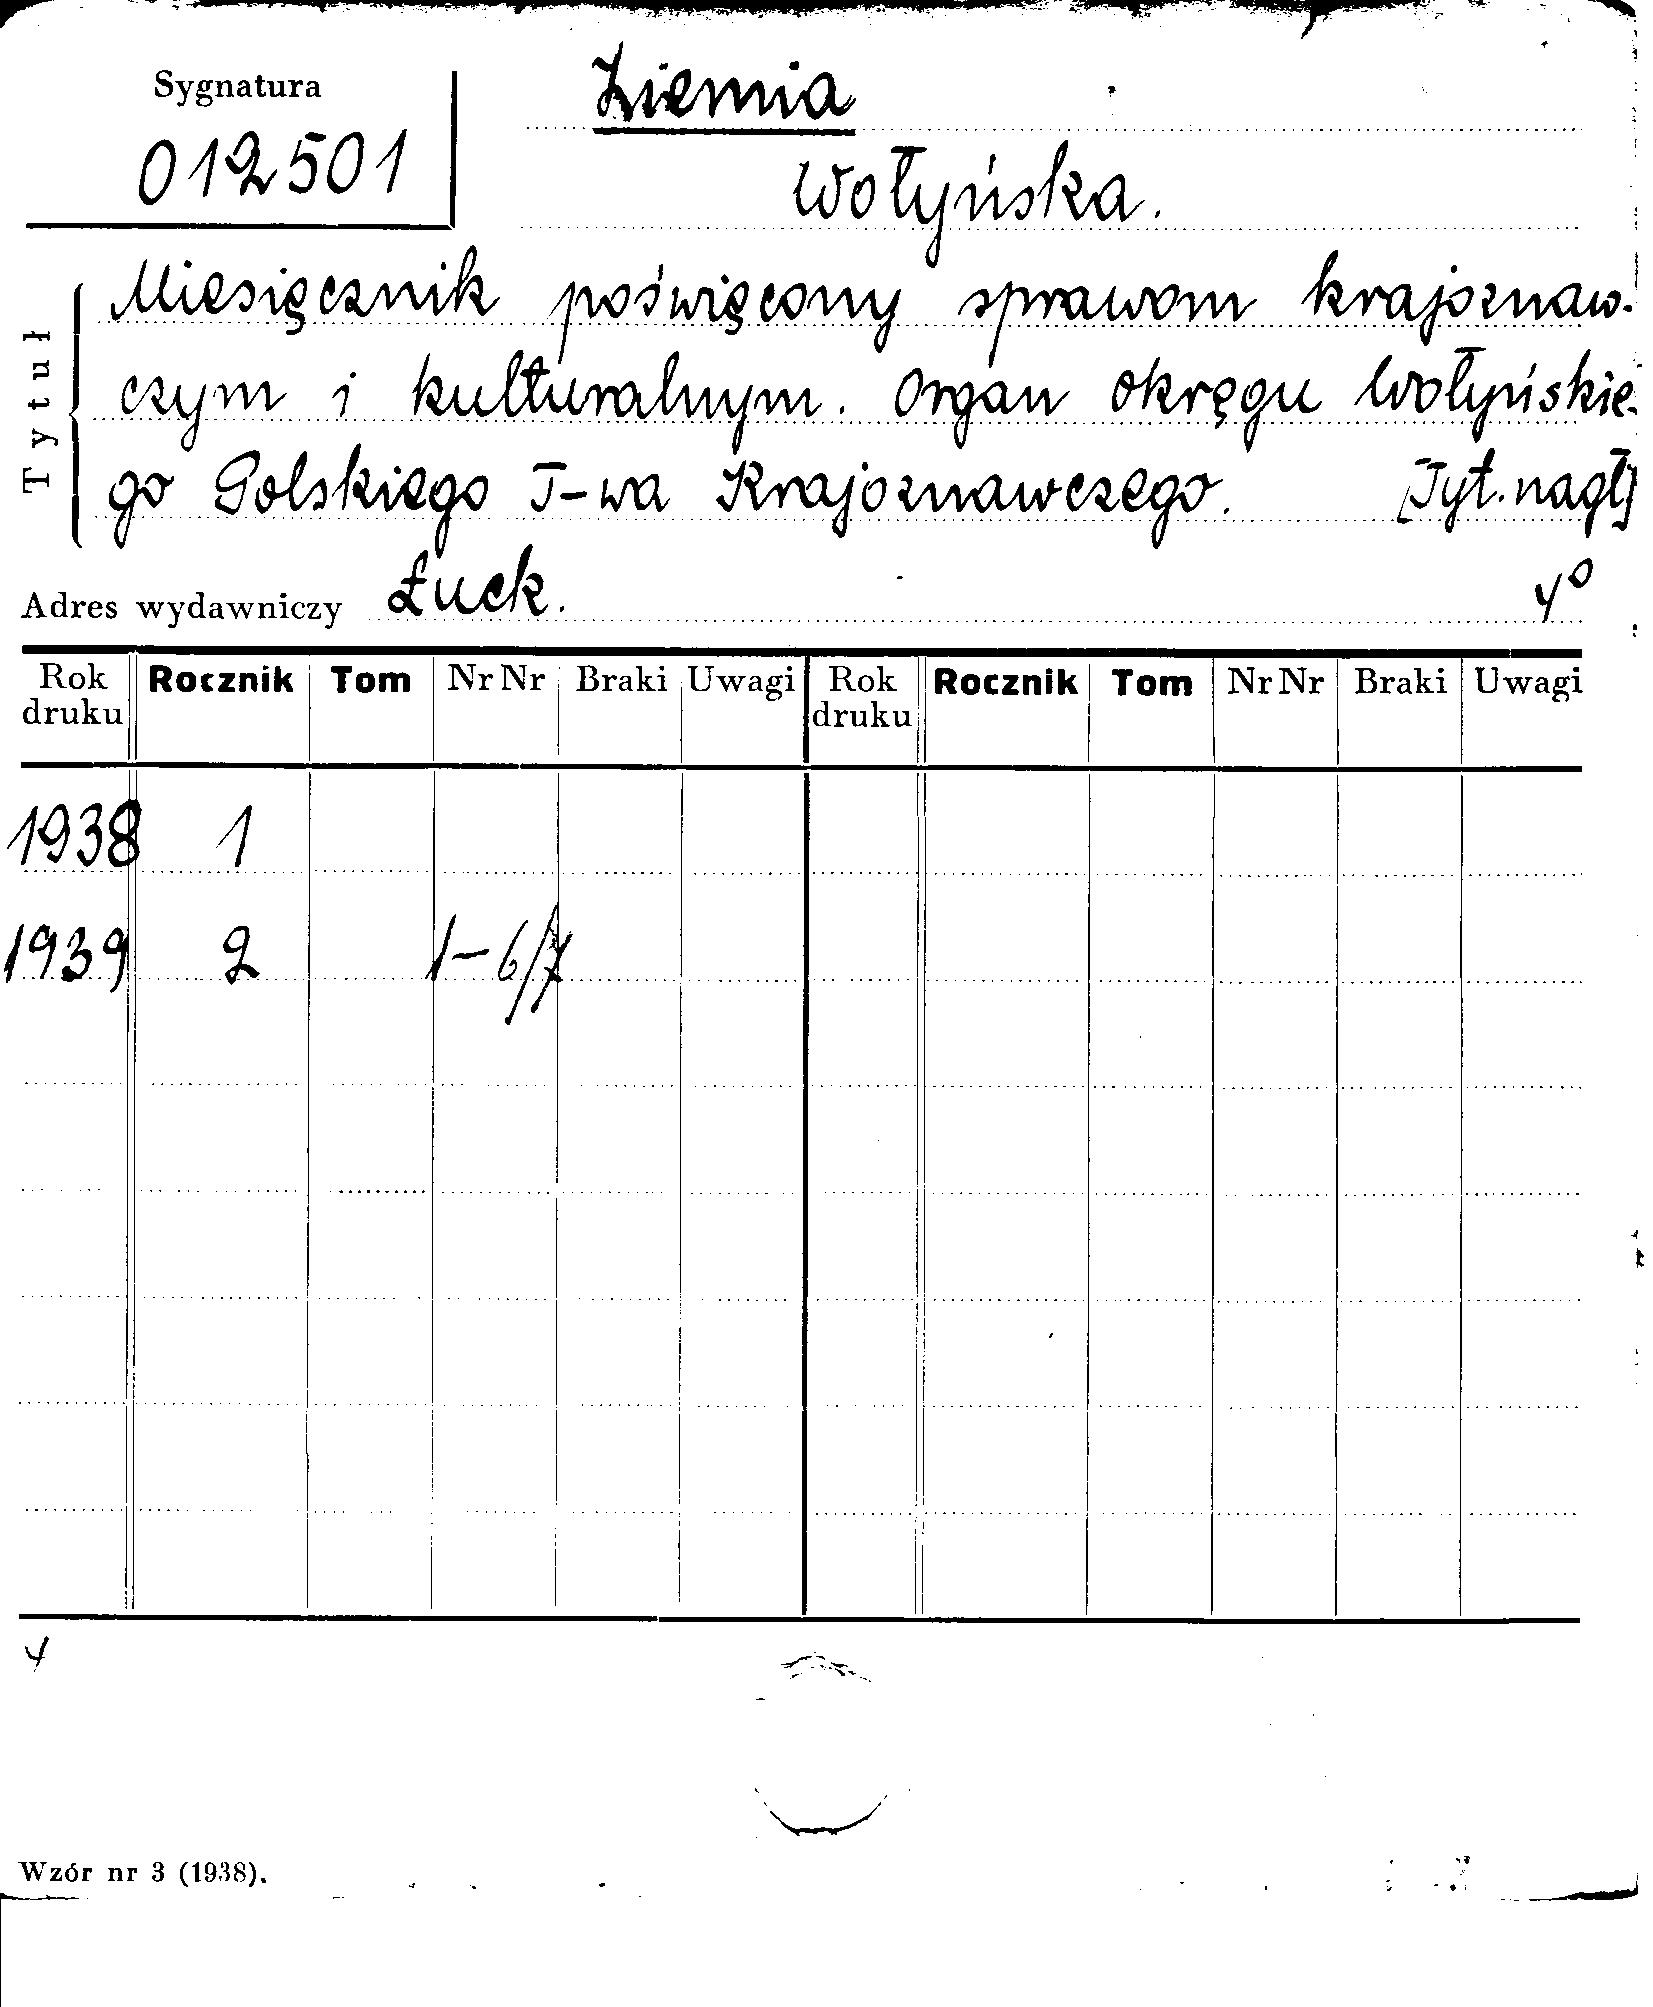 Sygnatura
012501
Ziemia
Wołyńska.
Tytuł
Miesięcznik poświęcony sprawom krajoznaw-
czym i kulturalnym. Organ okręgu Wołyńskie-
go Polskiego T-wa Krajoznawczego. [Tyt. nagł]
Adres wydawniczy Łuck. 4º
Rok druku Rocznik Tom Nr Nr Braki Uwagi Rok druku Rocznik Tom Nr Nr Braki Uwagi
1938 1
1939 2 1-6/7
4
Wzór nr 3 (1938).